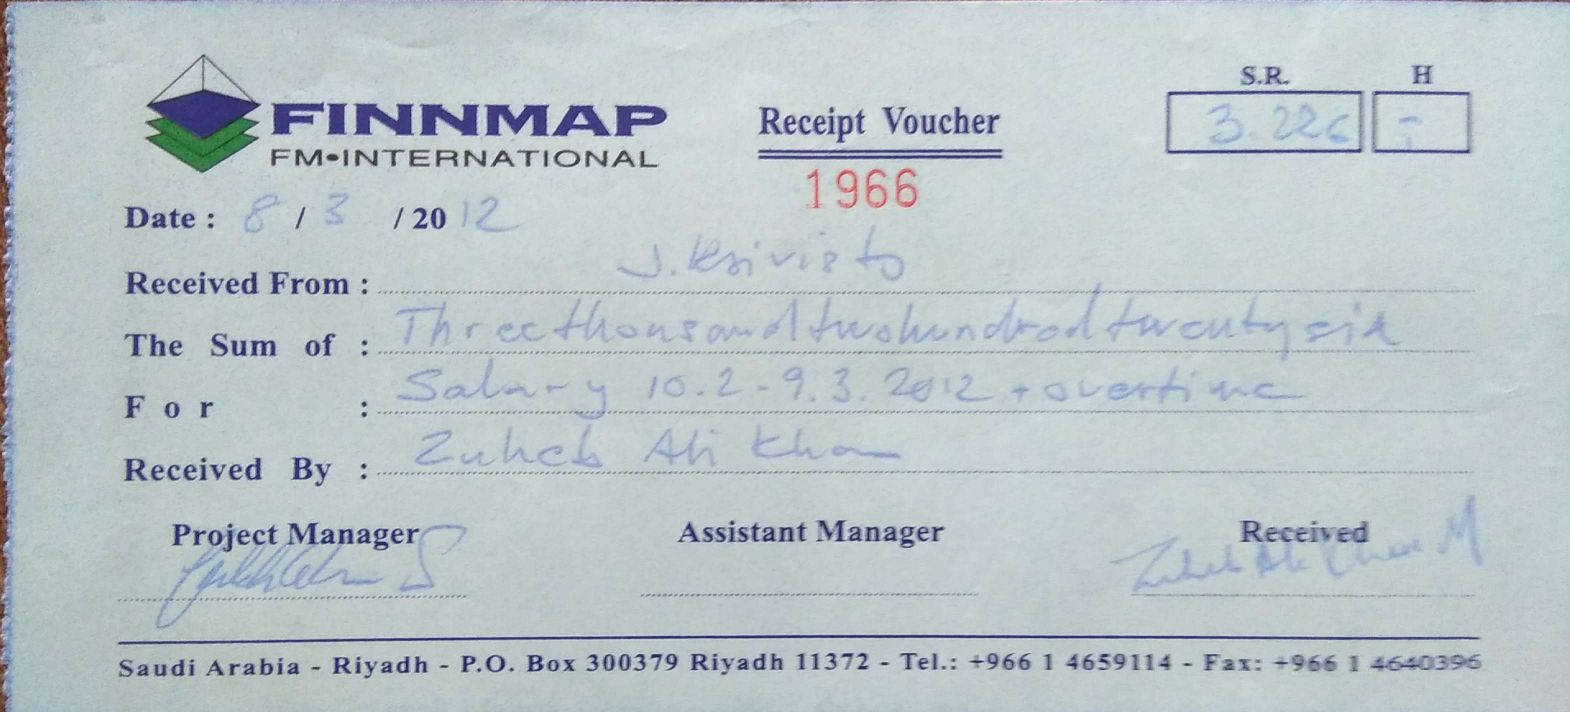 S.R. H
FINNMAP Receipt Voucher 3.226 -
FM•INTERNATIONAL
1966
Date : 8 / 3 / 2012
Received From : J.
The Sum of : Threethousandtwohundredtwentysix
For : Salary 10.2-9.3.2012 + overtime
Received By : Zuheb Ali Khan
Project Manager Assistant Manager Received
Zuheb Ali Khan M
Saudi Arabia - Riyadh - P.O. Box 300379 Riyadh 11372 - Tel.: +966 1 4659114 - Fax: +966 1 4640396